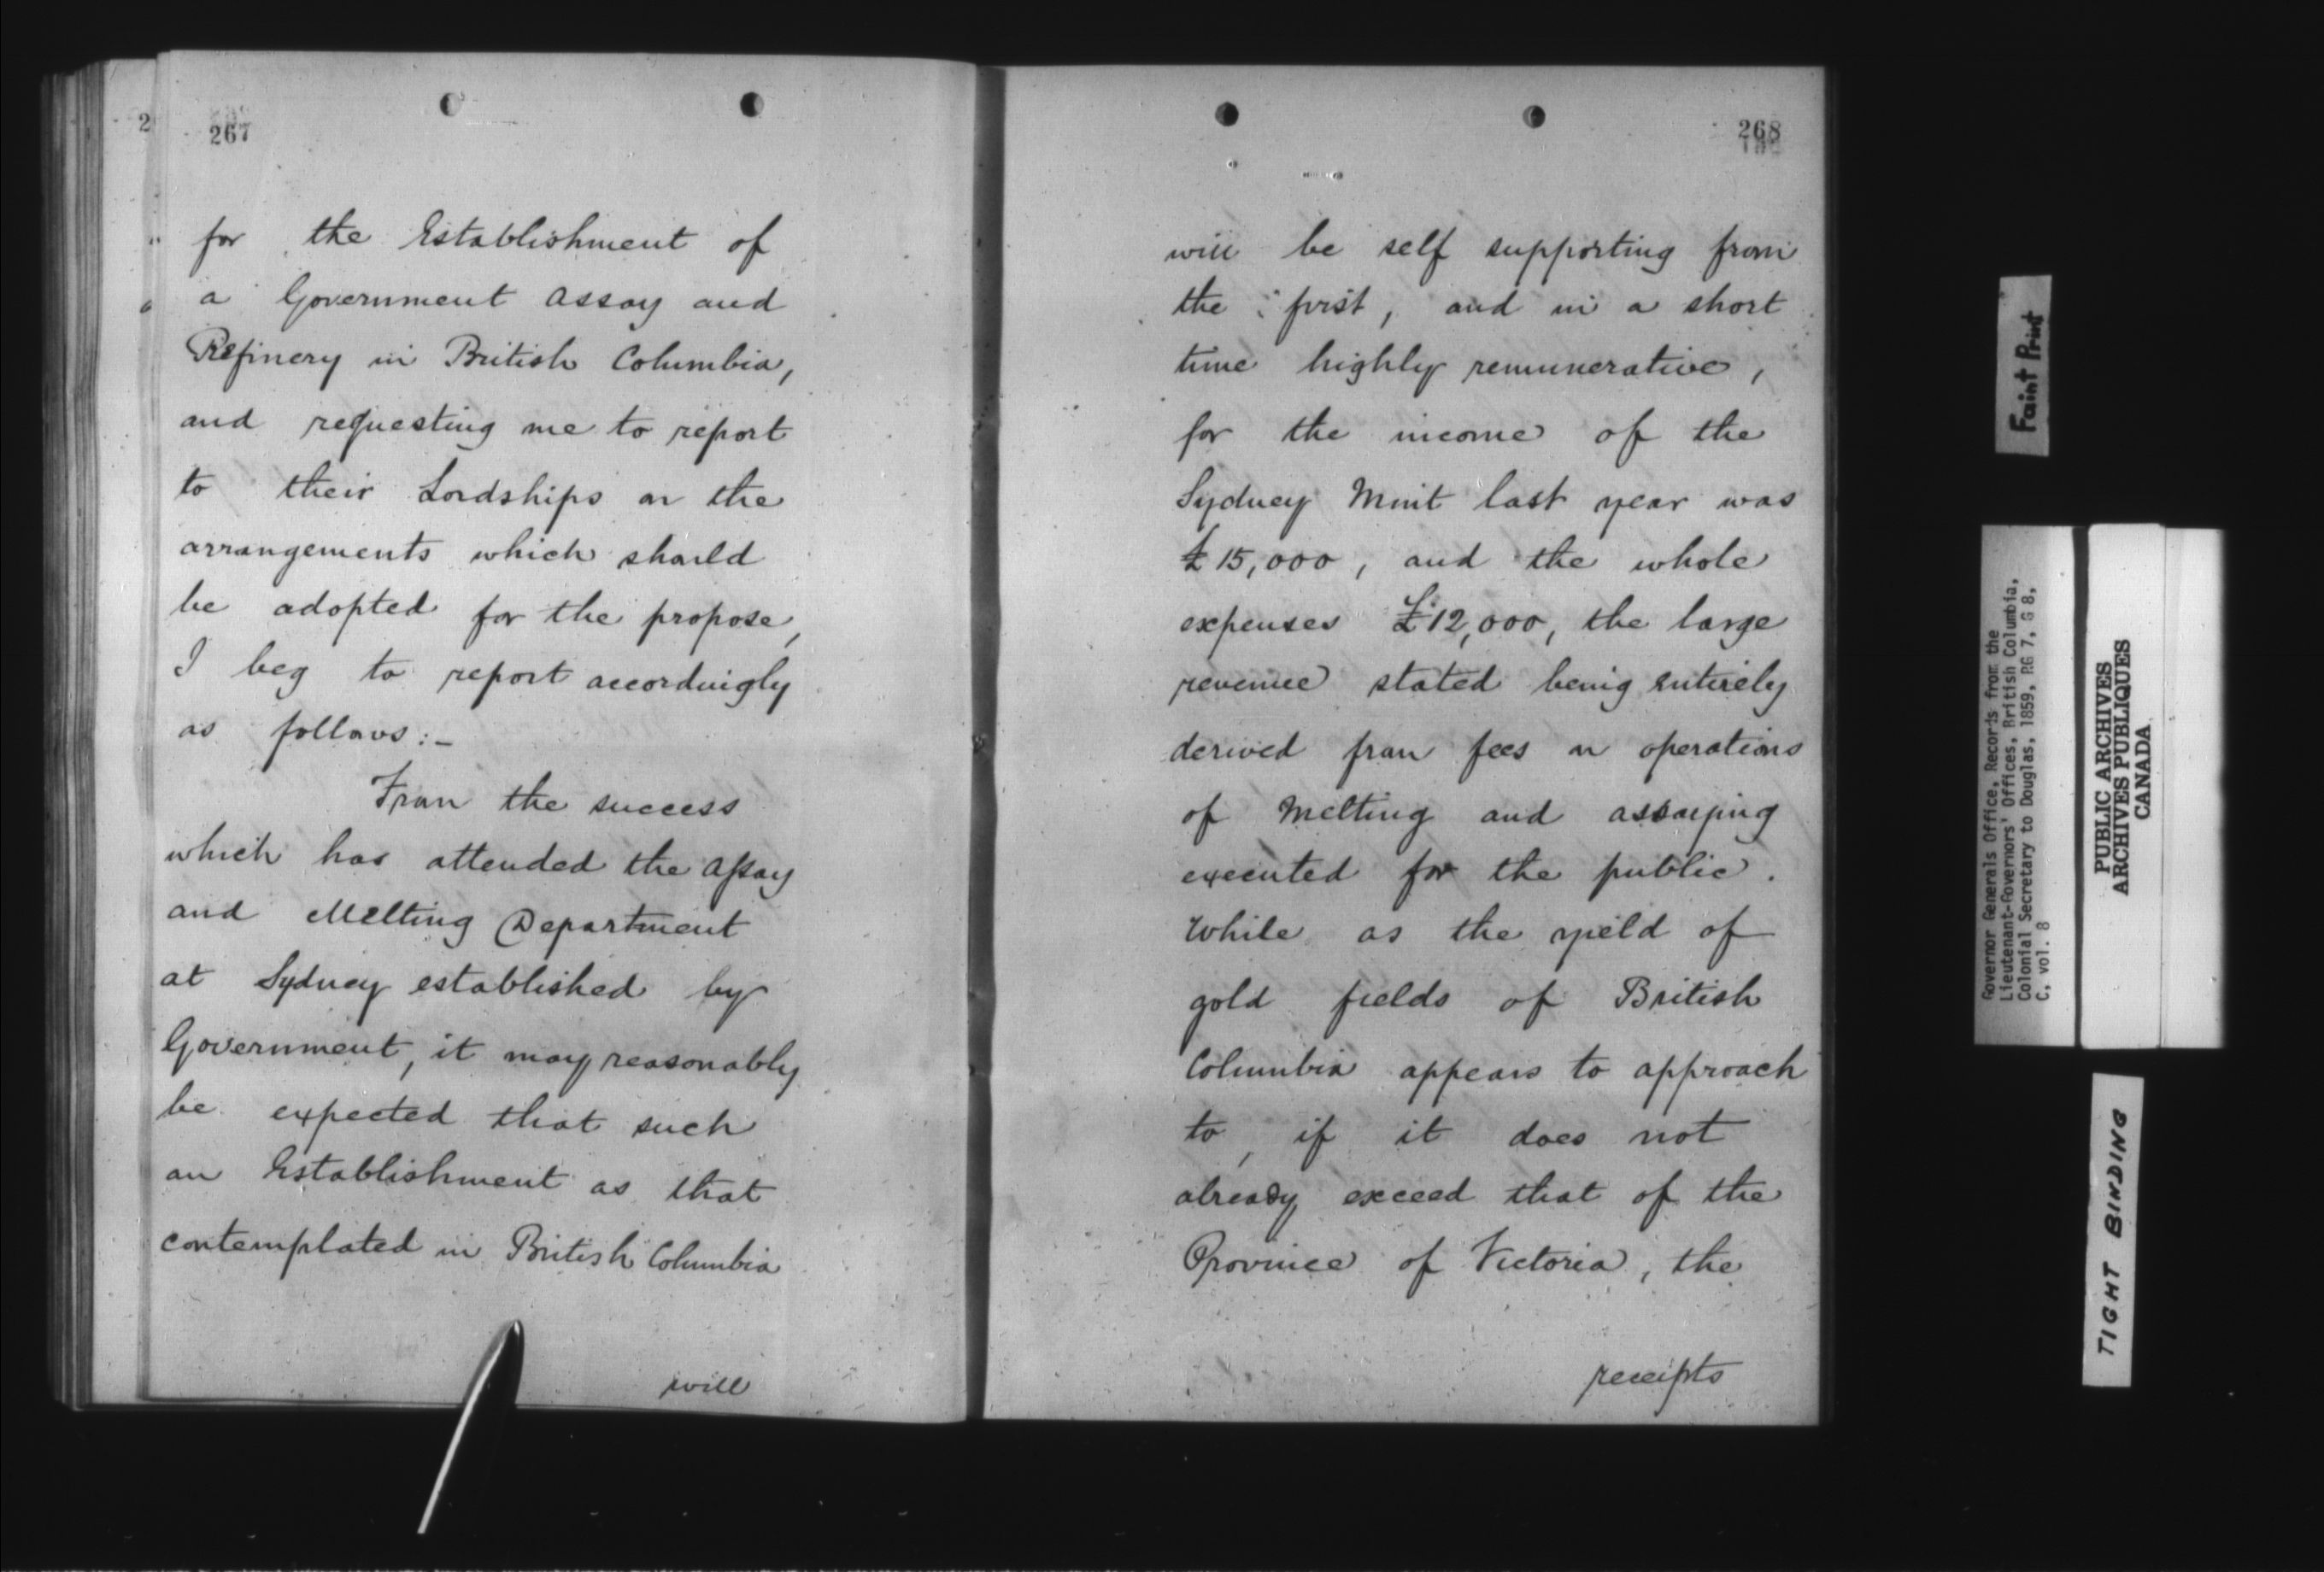 267
for the Establishment of
a Government Assay and
Refinery in British Columbia,
and requesting me to report
to their Lordships on the
arrangements which should
be adopted for the propose,
I beg to report accordingly
as follows:-
From the success
which has attended the Assay
and Melting Department
at Sydney established by
Government, it may reasonably
be expected that such
an Establishment as that
contemplated in British Columbia
will
268
will be self supporting from
the first, and in a short
time highly remunerative,
for the income of the
Sydney Mint last year was
£15,000, and the whole
expenses £12,000, the large
revenue stated being entirely
derived from fees on operations
of Melting and assaying
executed for the public.
While as the yield of
gold fields of British
Columbia appears to approach
to, if it does not
already exceed that of the
Province of Victoria, the
receipts
Faint Print
Governor Generals Office, Records from the
Lieutenant-Governors' Offices, British Columbia,
Colonial Secretary to Douglas, 1859, RG 7, G 8,
C, vol. 8
PUBLIC ARCHIVES
ARCHIVES PUBLIQUES
CANADA
TIGHT BINDING